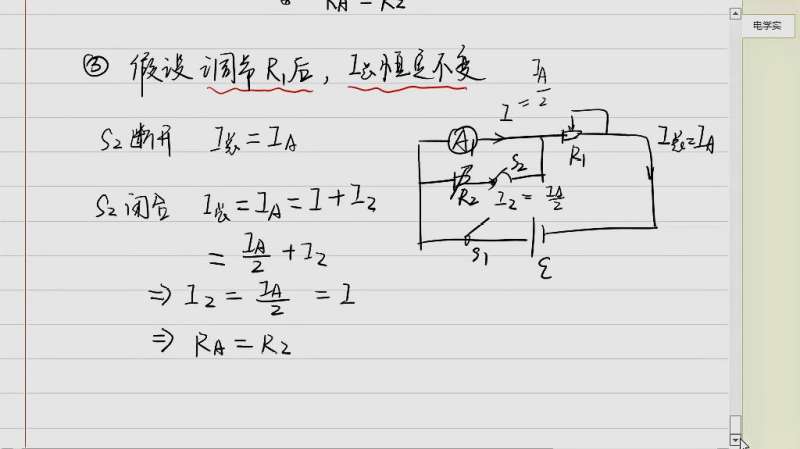 RA = R2
电学实
③ 假设调节R1后，I总恒定不变
S2断开 I总 = IA
S2闭合 I总 = IA = I + I2
= IA/2 + I2
⇒ I2 = IA/2 = I
⇒ RA = R2
I = IA/2
A1
R1
I总=IA
S2
R2
I2 = IA/2
S1
ε